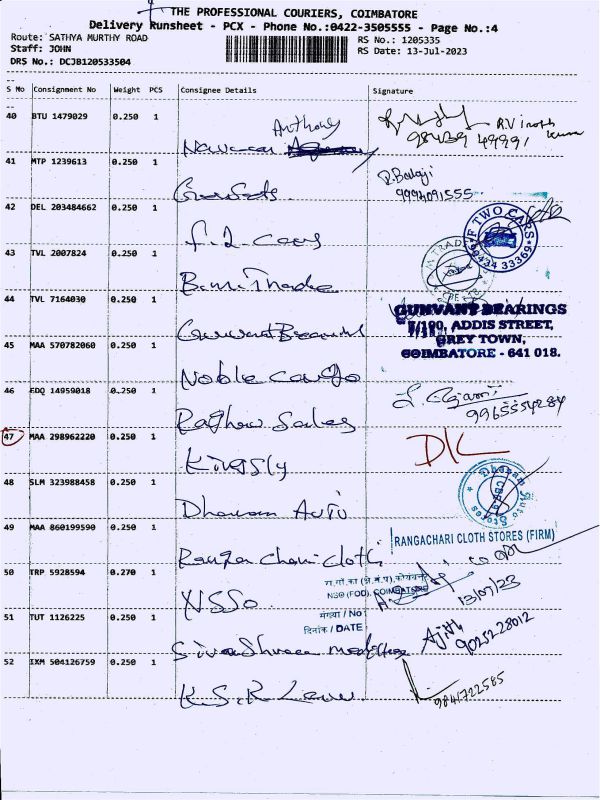 THE PROFESSIONAL COURIERS, COIMBATORE
Delivery Runsheet - PCX - Phone No.:0422-3505555 - Page No.:4
Route: SATHYA MURTHY ROAD
RS No.: 1205335
Staff: JOHN
RS Date: 13-Jul-2023
DRS No.: DCJB120533504
S No Consignment No Weight PCS Consignee Details Signature
40 BTU 1479029 0.250 1
Anthony
R.V inoth kumar
98439 49991
41 MTP 1239613 0.250 1
R.Balaji
9994091555
42 DEL 203484662 0.250 1
F TWO CARS
98434 33369
F. 2. Cars
43 TVL 2007824 0.250 1
B.M. Trade
44 TVL 7164030 0.250 1
GUNVANT BEARINGS
5/190, ADDIS STREET,
GREY TOWN,
COIMBATORE - 641 018.
Gunvant Bearing
45 MAA 570782060 0.250 1
Noble cargo
46 EDQ 14959018 0.250 1
9965554284
Raghav Sales
47 MAA 298962220 0.250 1
D/L
Kingsly
48 SLM 323988458 0.250 1
Dharam Auto Stores
CBE
Dharam Auto
49 MAA 860199590 0.250 1
RANGACHARI CLOTH STORES (FIRM)
Ranga chari cloth
50 TRP 5928594 0.270 1
रा.
NSO (FOD), COIMBATORE
13/07/23
NSSO
संख्या / No
दिनांक / DATE
51 TUT 1126225 0.250 1
Ajith
9025228012
52 IXM 504126759 0.250 1
9841722585
K.S.R Law